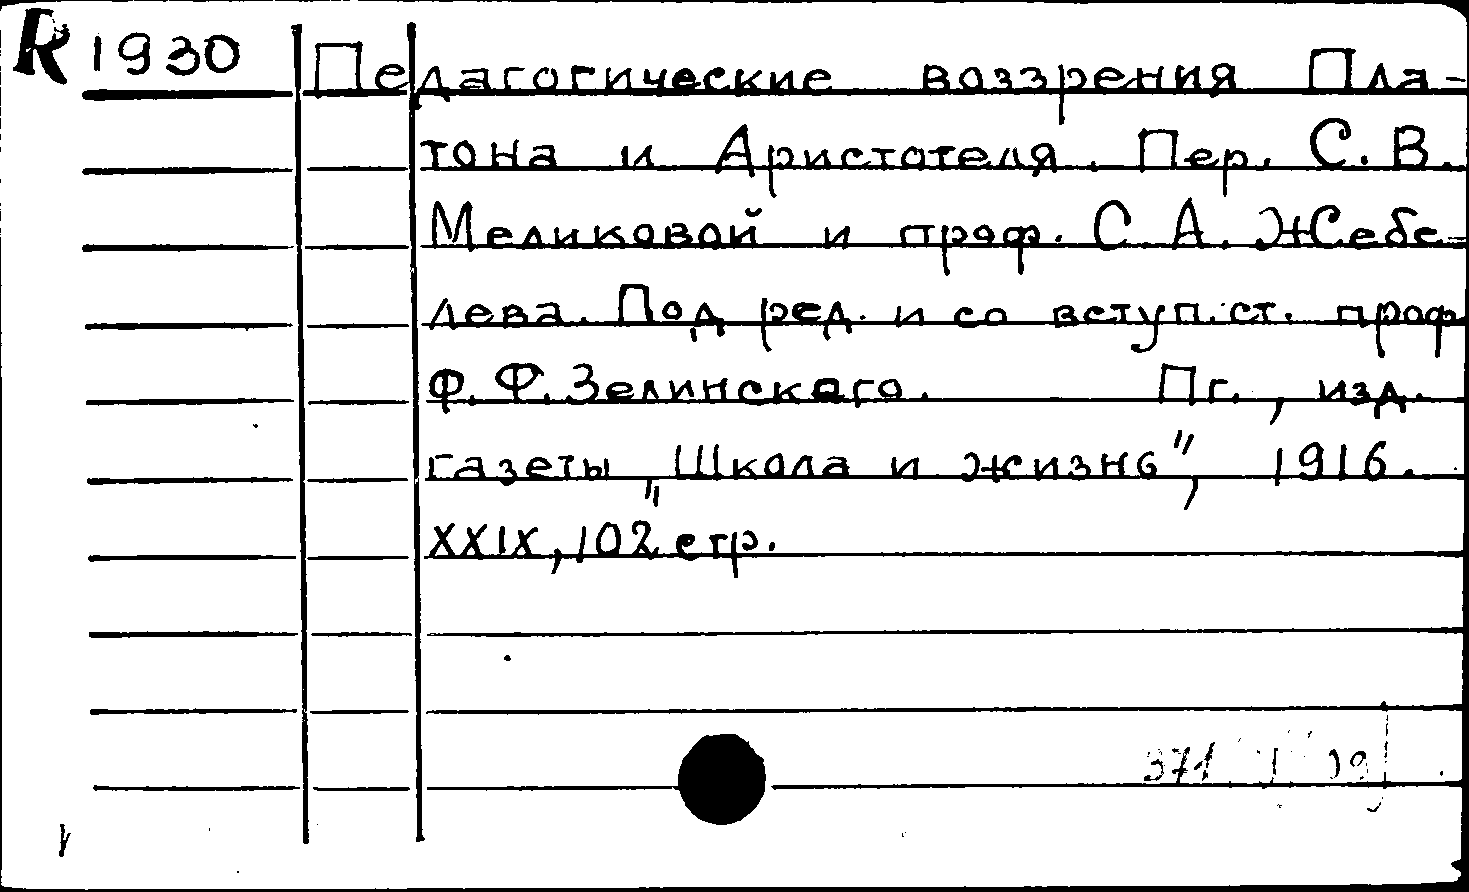 R 1930
Педагогические воззрения Пла-
тона и Аристотеля. Пер. С. В.
Меликовой и проф. С. А. Жебе-
лева. Под ред. и со вступ. ст. проф.
Ф. Ф. Зелинского. Пг., изд.
газеты „Школа и жизнь", 1916.
XXIX, 102 стр.
371